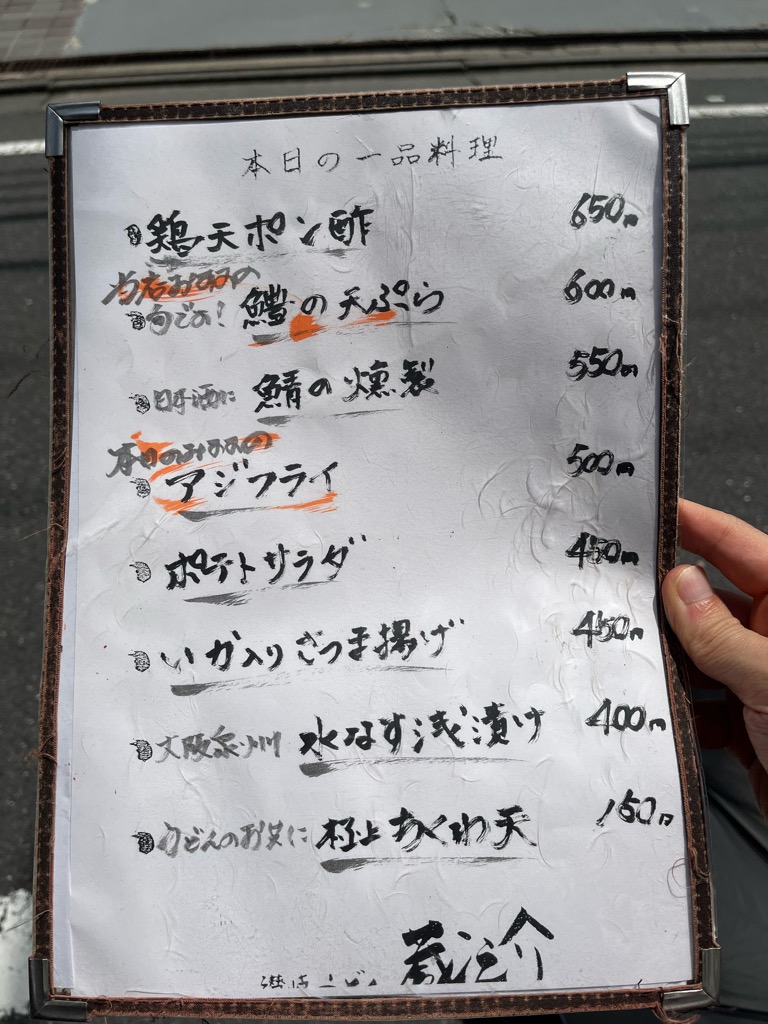 本日の一品料理
鶏天ポン酢 650円
旬です! 鱧の天ぷら 600円
日本酒に 鯖の燻製 550円
アジフライ 500円
ポテトサラダ 450円
いか入りさつま揚げ 450円
大阪泉州 水なす浅漬け 400円
うどんのお供に 極上ちくわ天 150円
蔵之介